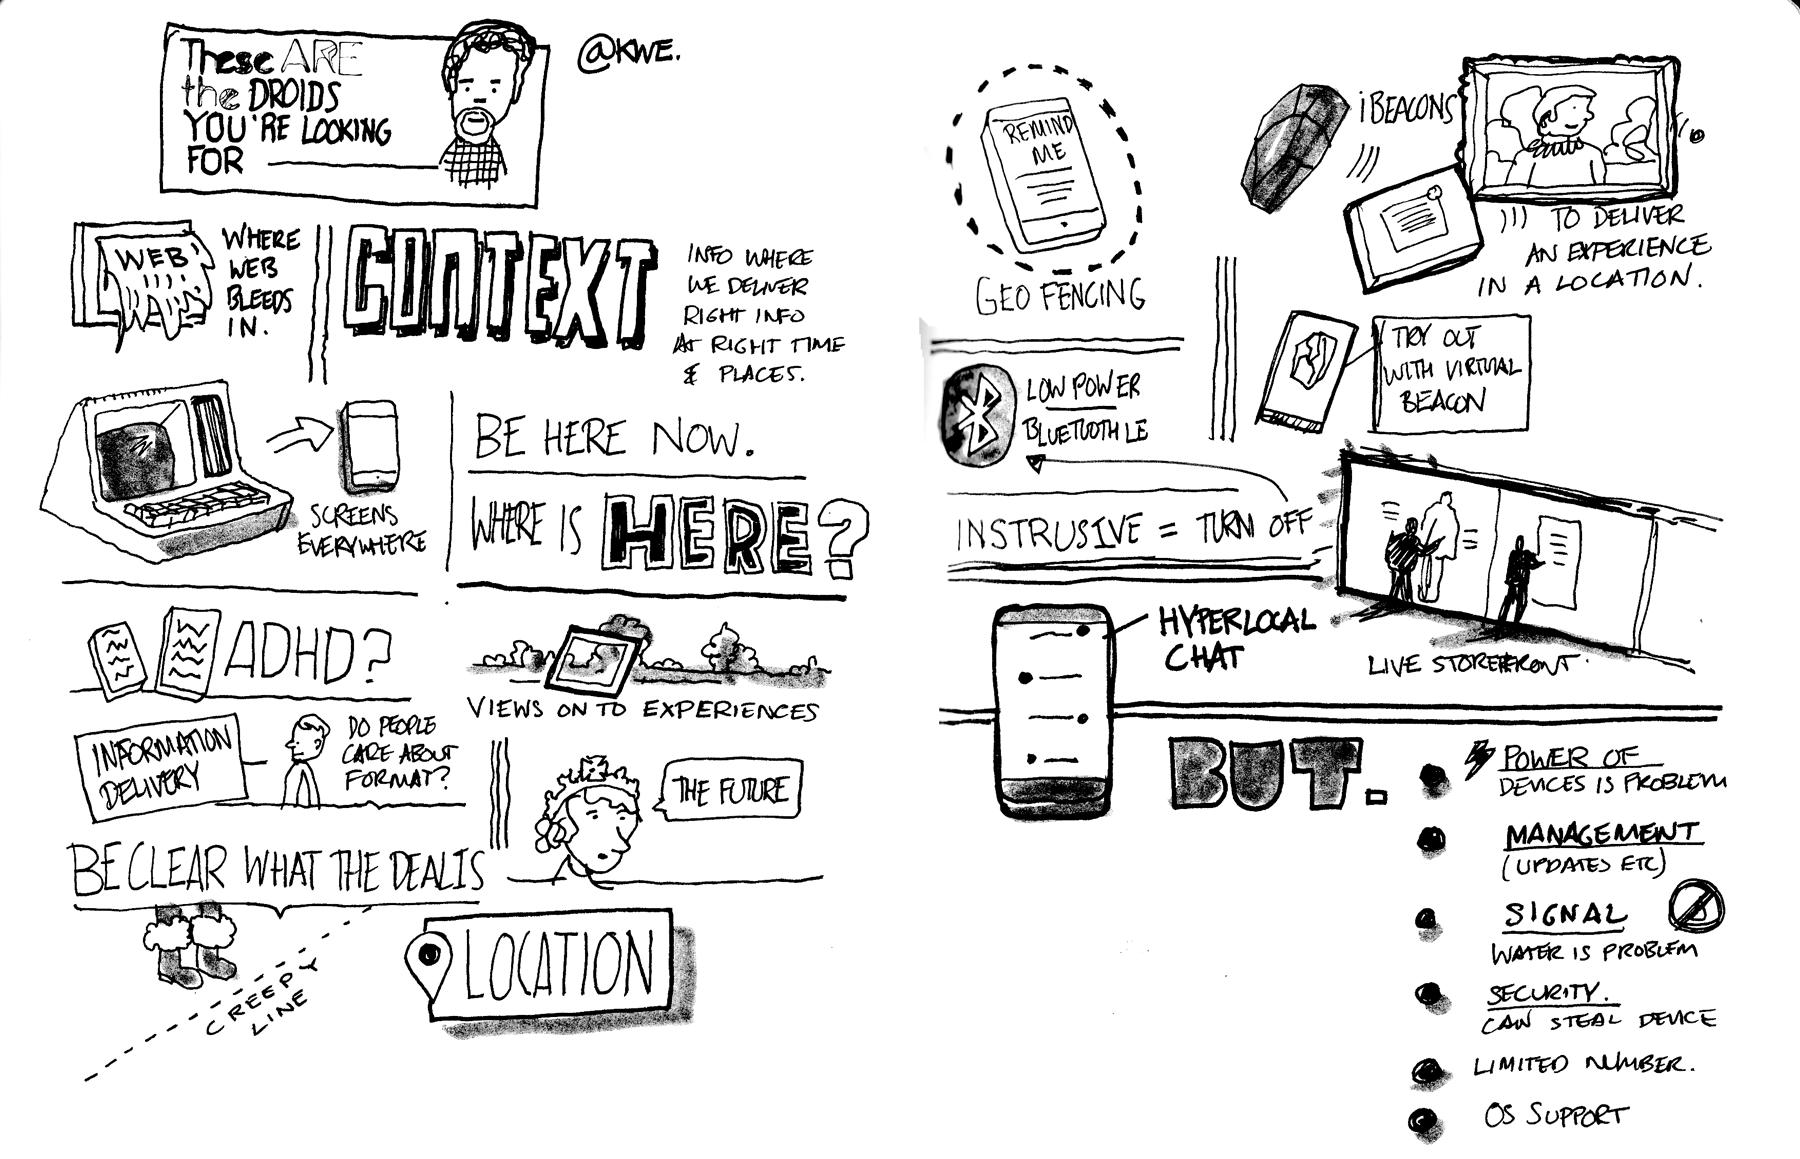 These ARE
the DROIDS
YOU'RE LOOKING
FOR
@KWE.
WEB
WHERE
WEB
BLEEDS
IN.
CONTEXT
INFO WHERE
WE DELIVER
RIGHT INFO
AT RIGHT TIME
& PLACES.
SCREENS
EVERYWHERE
BE HERE NOW.
WHERE IS HERE?
ADHD?
VIEWS ON TO EXPERIENCES
INFORMATION
DELIVERY
DO PEOPLE
CARE ABOUT
FORMAT?
THE FUTURE
BE CLEAR WHAT THE DEAL IS
CREEPY
LINE
LOCATION
REMIND
ME
GEO FENCING
iBEACONS
))) TO DELIVER
AN EXPERIENCE
IN A LOCATION.
TRY OUT
WITH VIRTUAL
BEACON
LOW POWER
BLUETOOTH LE
INSTRUSIVE = TURN OFF
LIVE STOREFRONT.
HYPERLOCAL
CHAT
BUT.
POWER OF
DEVICES IS PROBLEM
MANAGEMENT
(UPDATES ETC)
SIGNAL
WATER IS PROBLEM
SECURITY.
CAN STEAL DEVICE
LIMITED NUMBER.
OS SUPPORT